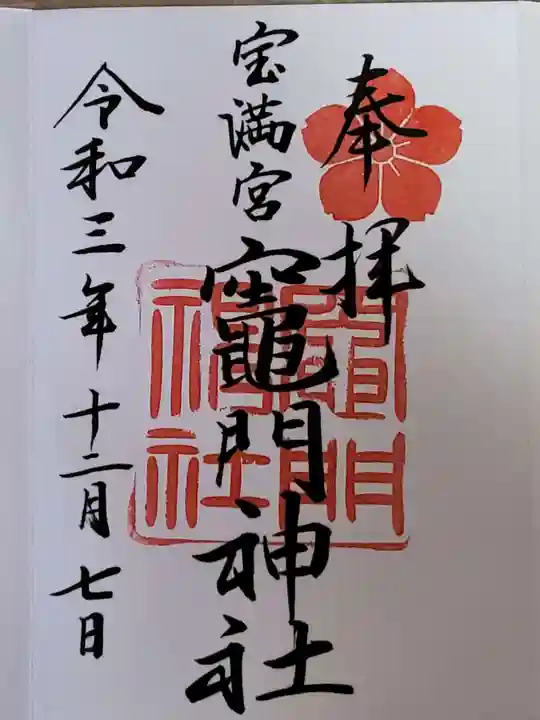 奉拝
宝満宮
竈門神社
竈門神社
令和三年十二月七日